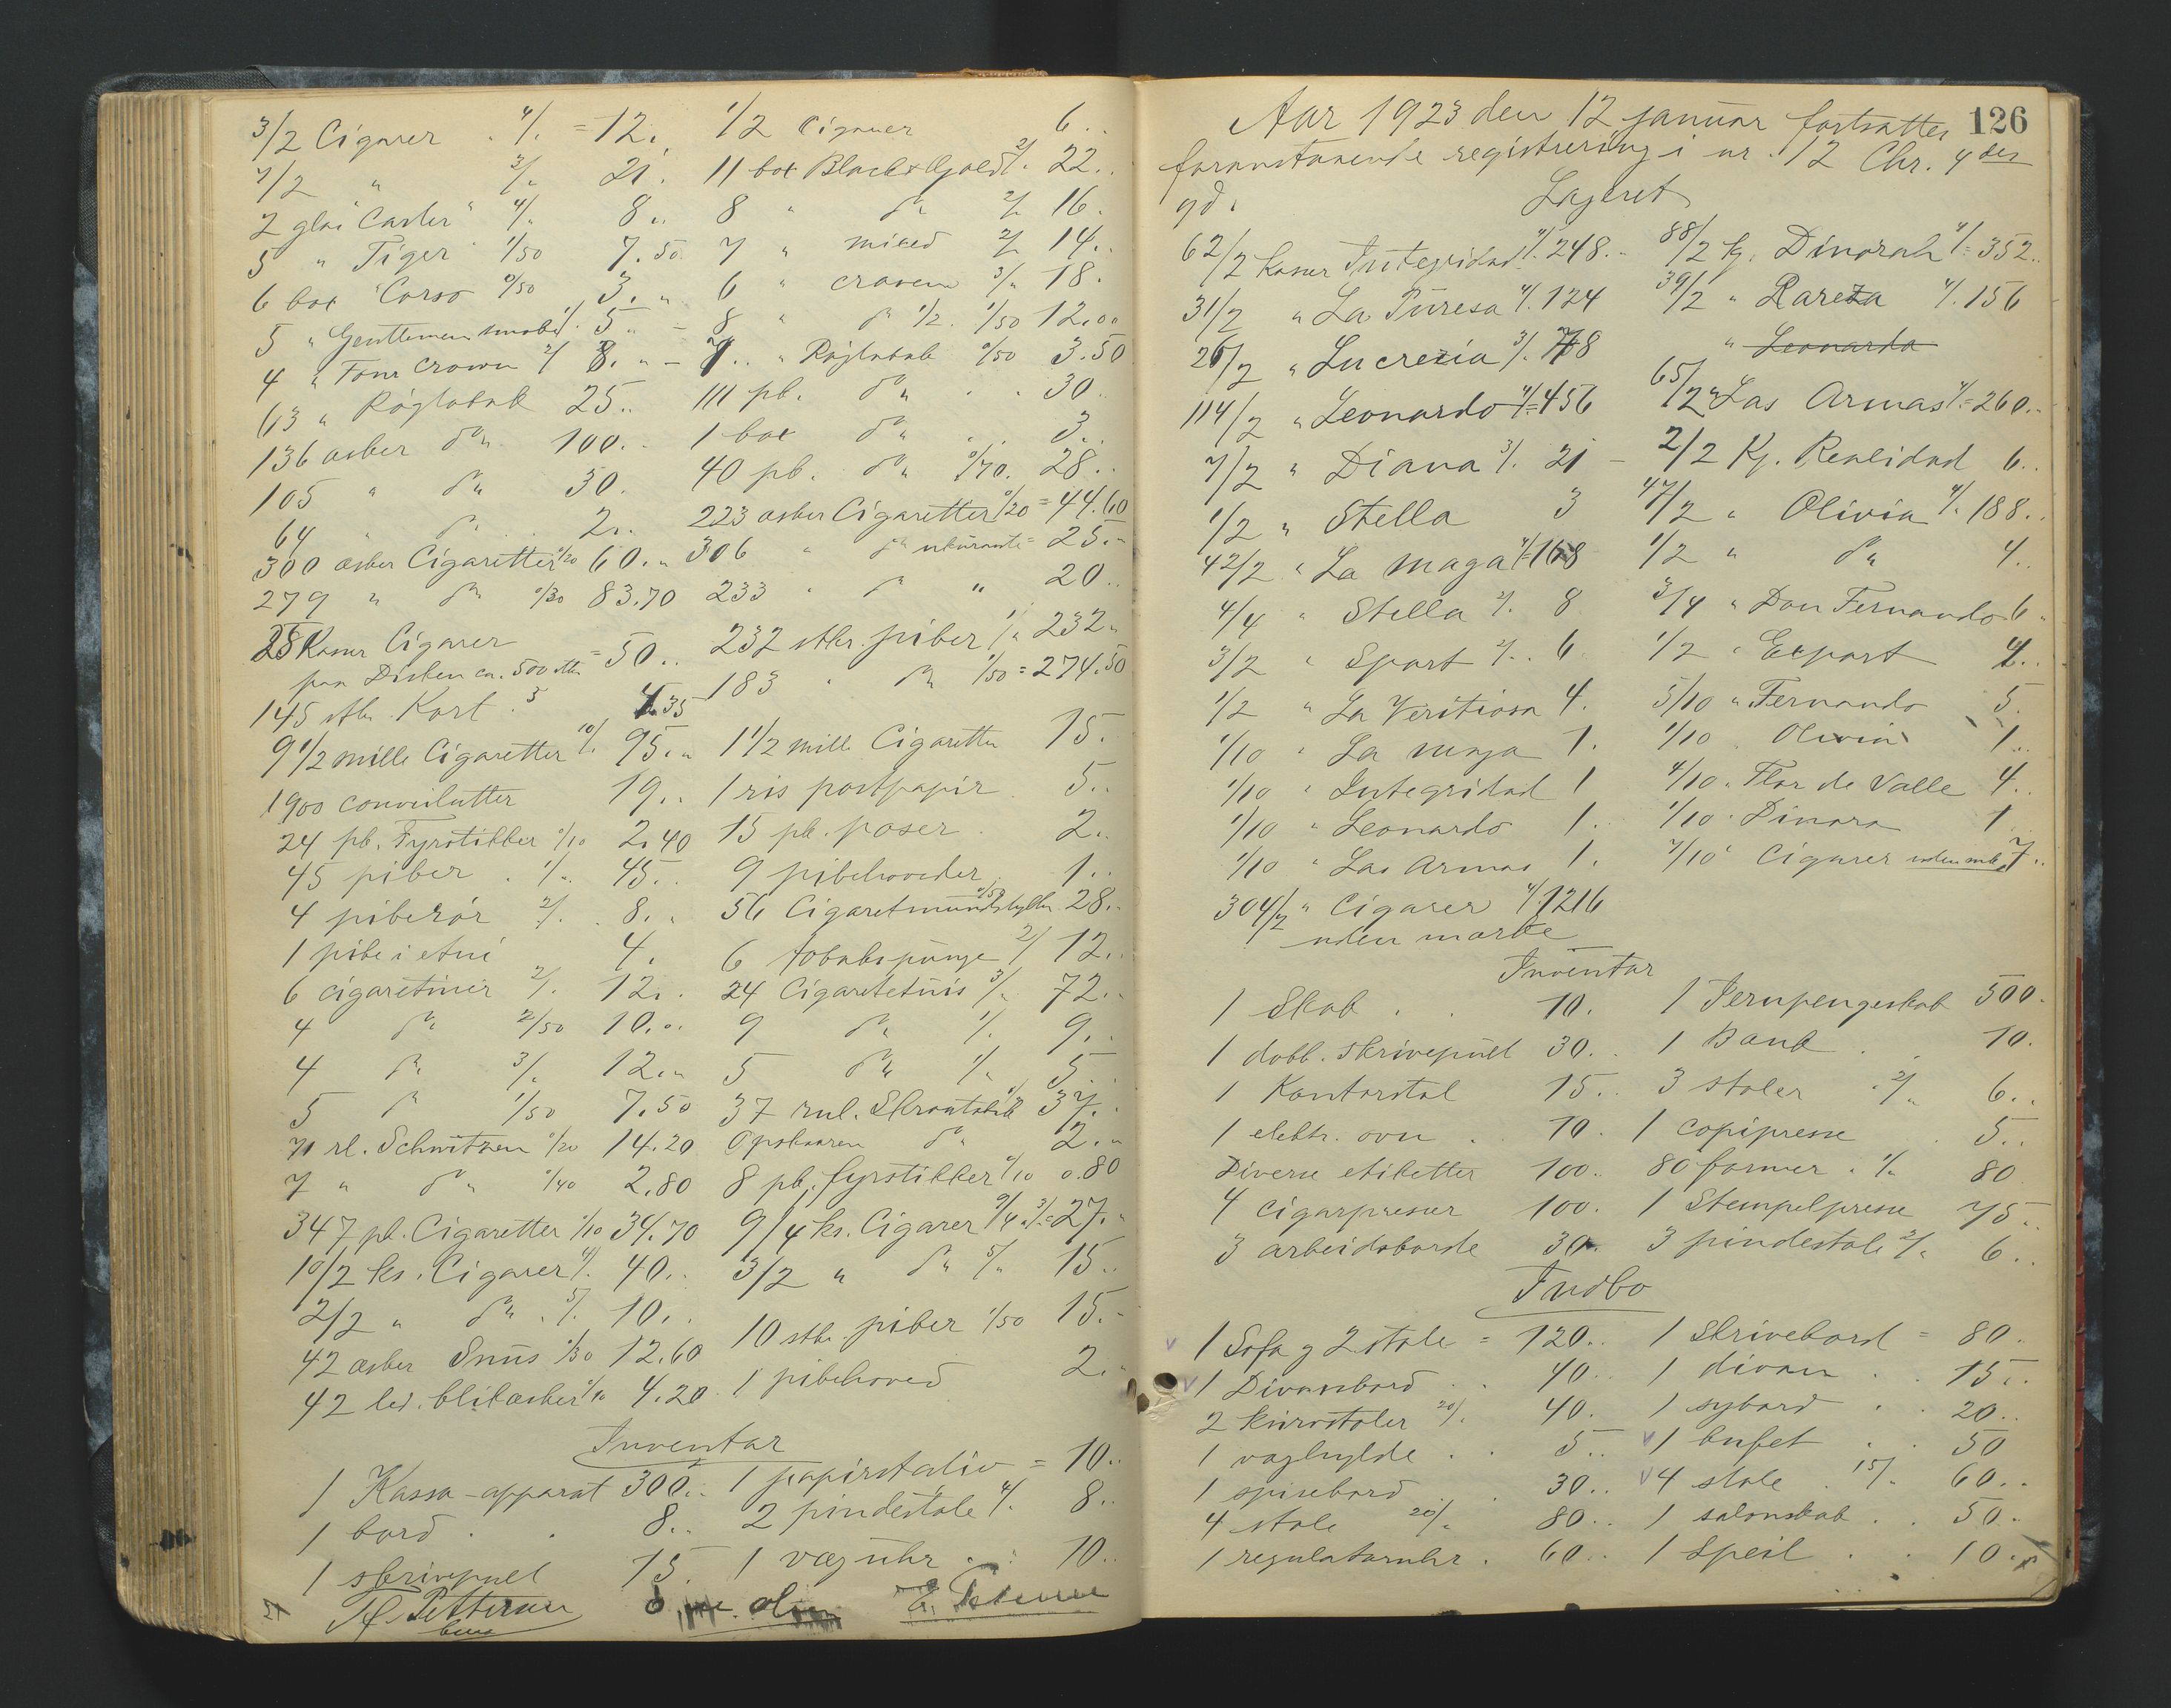 3/2 Cigarer 4/. = 12.
7/2 " 3/. 21.
2 glas "Carler" 4/. 8..
5 " Tiger 1/50 7.50
6 box Corso 0/50 3. "
5 " Gentlemen 1/. 5 "
4 " Four Crown 2/ 8. "
63 " Røgtobak 25..
136 æsker do 100..
105 " do 30.
64 " do 2..
300 æsker Cigaretter 0/20 60. "
279 " do 0/30 83.70
25 Kasser Cigarer
paa Disken ca. 500 stk = 50..
145 stk. Kort 3 4.35
9 1/2 mille Cigaretter 10/. 95. "
1900 convulutter 19..
24 pk. Fyrstikker 0/10 2.40
45 piber 1/. 45..
4 piberør 2/. 8. "
1 pibe i etui 4.
6 cigaretmunst 2/. 12..
4 do 2/50 10...
4 do 3/. 12. "
5 do 1/50 7.50
71 rl. Schnitzen 0/20 14.20
7 " do 0/40 2.80
347 pk. Cigaretter 0/10 34.70
10/2 ks. Cigarer 4/. 40..
2/2 " do 5/. 10..
42 æsker Snus 0/30 12.60
42 led. blikæsker 0/10 4.20
1/2 Cigarer 6..
11 box Black & Goald 2/. 22..
8 " do 2/. 16.
7 " mixed 2/. 14..
6 " craven 3/. 18.
8 " do 1/2 1/50 12.00
7 " Røgtobak 0/50 3.50
111 pk. do 30.
1 box do 3..
40 pk. do 0/70 28..
223 æsker Cigaretter 0/20 = 44.60
306 " do ukurante = 25. "
233 " do " 20..
232 stkr. piber 1/. 232 "
183 " do 1/50 = 274.50
1 1/2 mill. Cigaretter 15.
1 ris postpapir 5..
15 pk. poser 2..
9 pibehoveder 1..
56 Cigaretmundstykker 0/50 28..
6 tobakspunge 2/ 12..
24 Cigaretetuis 3/. 72..
9 do 1/. 9..
5 do 1/. 5.
37 rul. Skraatobak 1/ 37.
Opskaaren do 2. "
8 pk. fyrstikker 0/10 0.80
9/4 ks. Cigarer 9/4 3/. = 27. "
3/2 " do 5/. 15..
10 stk. piber 1/50 15. "
1 pibehoved 2. "
Inventar
1 Kassa-apparat 300.. 1 papirstativ = 10..
1 bord 8.. 2 pindestole 4/. 8..
1 skrivepult 15. 1 væguhr 10..
Petterson
126
Aar 1923 den 12 januar fortsattes
foranstaaende registrering i nr. 12 Chr. 4des
gd. Lageret
62/2 kasser Integridad 4/. 248.. 88/2 kj. Dinorah 4/. = 352..
31/2 " La Puresa 4/. 124 39/2 " Rareza 4/. 156
26/2 " Lucrezia 3/. 78 " Leonarda
114/2 " Leonardo 4/. = 456 65/2 " Las Armas 4/. = 260..
7/2 " Diana 3/. 21 2/2 Kj. Realidad 6..
1/2 " Stella 3 47/2 " Olivia 4/. 188..
42/2 " La maga 4/. = 168 1/2 " do 4..
4/4 " Stella 2/. 8 3/4 " Don Fernando 6 "
3/2 " Sport 2/. 6 1/2 " Export 4..
1/2 " La Veritiosa 4. 5/10 " Fernando 5.
1/10 " La maja 1. 1/10 Olivia 1..
1/10 " Integridad 1 4/10 " Flor de Valle 4..
1/10 " Leonardo 1.. 1/10 " Dinora 1
1/10 " Las Armas 1. 7/10 " Cigarer uden mk. 7..
304/2 " Cigarer 4/. 1216
uden marke
Inventar
1 Skab 10. 1 Jernpengeskab 500.
1 dobb. skrivepult 30.. 1 Bank 10.
1 Kontorstol 15.. 3 stoler 2/. 6..
1 elektr. ovn 10. 1 copipresse 5..
Diverse etiketter 100.. 80 former 1/. 80
4 Cigarpresser 100. 1 Stempelpresse 75..
3 arbeidsborde 30. 3 pindestole 2/. 6..
Indbo
1 Sofa g 2 stole = 120.. 1 skrivebord = 80.
1 Divansbord 40.. 1 divan 15..
2 kurvstoler 20/. 40. 1 sybord 20..
1 vaghylde 5.. 1 bufet 50
1 spisebord 30.. 4 stole 15/. 60..
4 stole 20/. 80.. 1 salonskab 50.
1 regulatoruhr 60.. 1 speil 10..